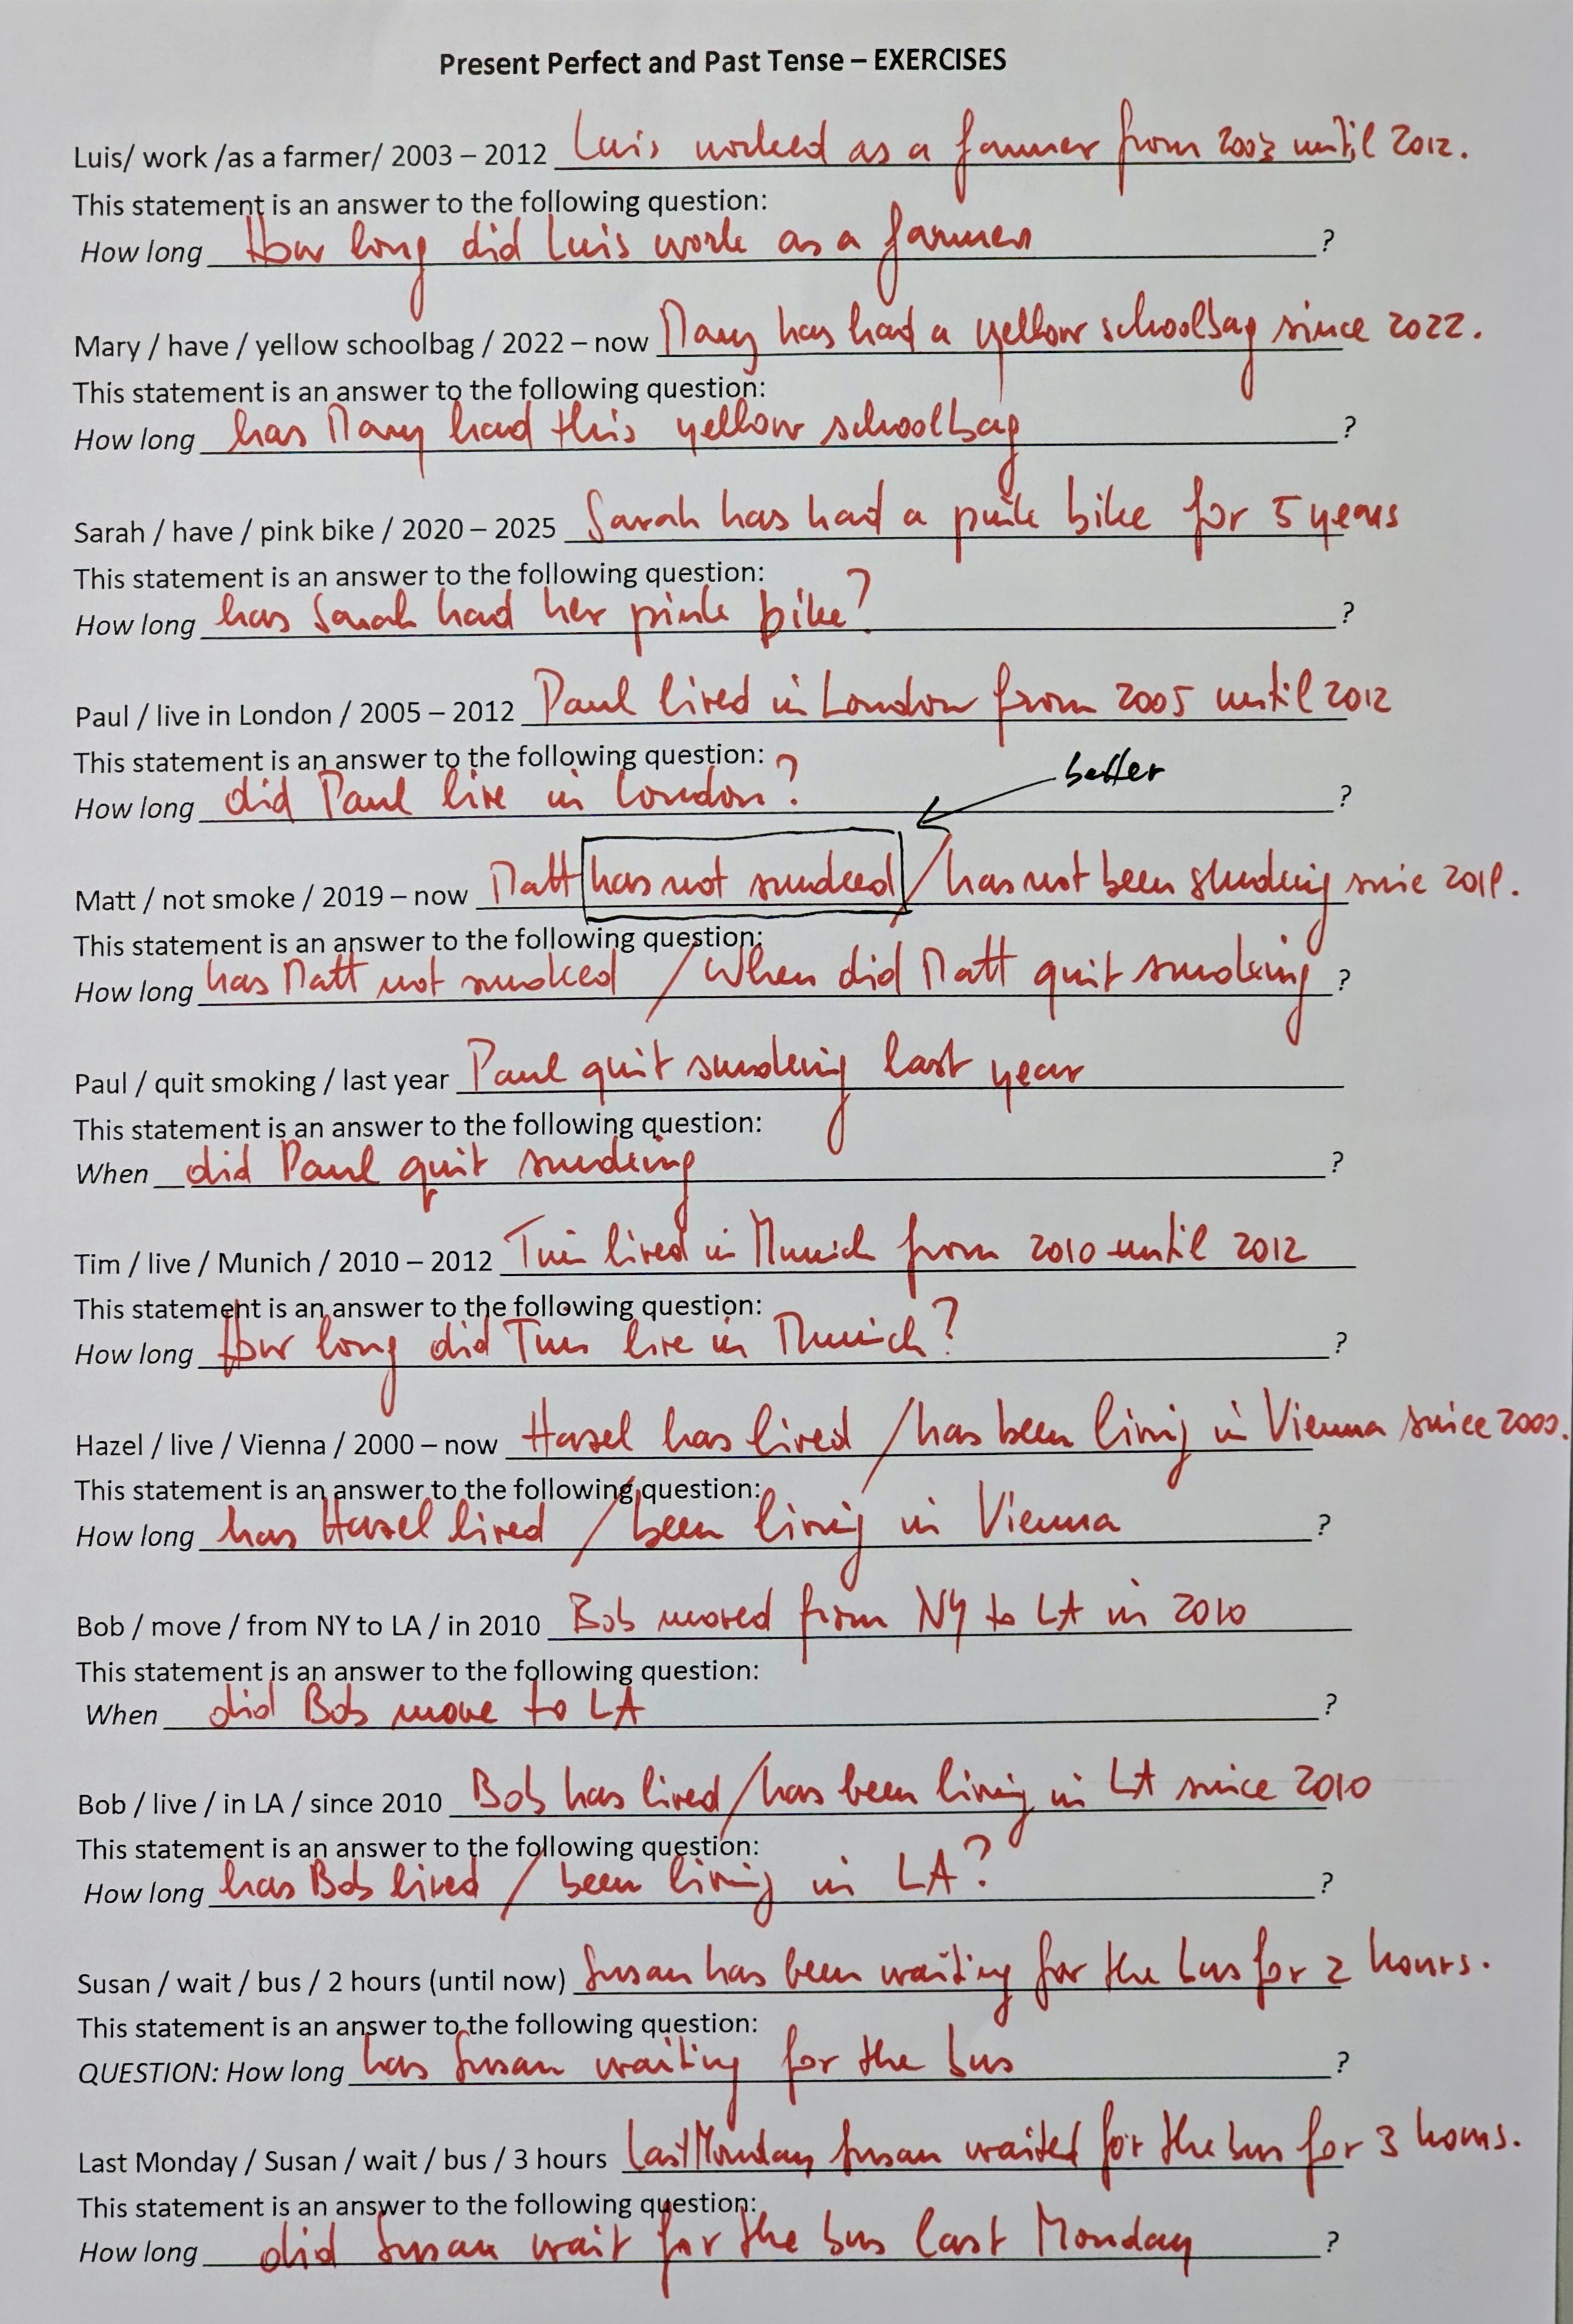 Present Perfect and Past Tense – EXERCISES
Luis/ work /as a farmer/ 2003 – 2012 Luis worked as a farmer from 2003 until 2012.
This statement is an answer to the following question:
How long How long did Luis work as a farmer ?
Mary / have / yellow schoolbag / 2022 – now Mary has had a yellow schoolbag since 2022.
This statement is an answer to the following question:
How long has Mary had this yellow schoolbag ?
Sarah / have / pink bike / 2020 – 2025 Sarah has had a pink bike for 5 years
This statement is an answer to the following question:
How long has Sarah had her pink bike? ?
Paul / live in London / 2005 – 2012 Paul lived in London from 2005 until 2012
This statement is an answer to the following question:
better
How long did Paul live in London? ?
Matt / not smoke / 2019 – now Matt has not smoked / has not been smoking since 2019.
This statement is an answer to the following question:
How long has Matt not smoked / When did Matt quit smoking ?
Paul / quit smoking / last year Paul quit smoking last year
This statement is an answer to the following question:
When did Paul quit smoking ?
Tim / live / Munich / 2010 – 2012 Tim lived in Munich from 2010 until 2012
This statement is an answer to the following question:
How long How long did Tim live in Munich? ?
Hazel / live / Vienna / 2000 – now Hazel has lived / has been living in Vienna since 2000.
This statement is an answer to the following question:
How long has Hazel lived / been living in Vienna ?
Bob / move / from NY to LA / in 2010 Bob moved from NY to LA in 2010
This statement is an answer to the following question:
When did Bob move to LA ?
Bob / live / in LA / since 2010 Bob has lived / has been living in LA since 2010
This statement is an answer to the following question:
How long has Bob lived / been living in LA? ?
Susan / wait / bus / 2 hours (until now) Susan has been waiting for the bus for 2 hours.
This statement is an answer to the following question:
QUESTION: How long has Susan waiting for the bus ?
Last Monday / Susan / wait / bus / 3 hours Last Monday Susan waited for the bus for 3 hours.
This statement is an answer to the following question:
How long did Susan wait for the bus last Monday ?